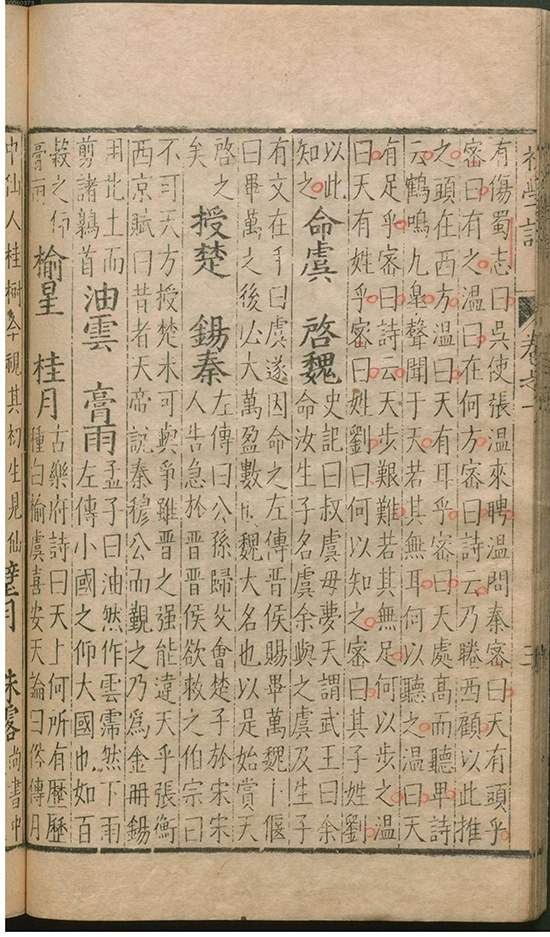 初學記 卷之一 三
有傷蜀志曰吳使張溫來聘溫問秦密曰天有頭乎
密曰有之溫曰在何方密曰詩云乃睠西顧以此推
之頭在西方溫曰天有耳乎密曰天處高而聽卑詩
云鶴鳴九皐聲聞于天若其無耳何以聽之溫曰天
有足乎密曰詩云天步艱難若其無足何以步之溫
曰天有姓乎密曰姓劉曰何以知之密曰其子姓劉
以此
知之
命虞 啓魏
史記曰叔虞母夢天謂武王曰余
命汝生子名虞余與之虞及生子
有文在手曰虞遂因命之左傳晉侯賜畢萬魏卜偃
曰畢萬之後必大萬盈數也魏大名也以是始賞天
啓之
矣
授楚 錫秦
左傳曰公孫歸父會楚子於宋宋
人告急於晉晉侯欲救之伯宗曰
不可天方授楚未可與爭雖晉之强能違天乎張衡
西京賦曰昔者天帝說秦穆公而覲之乃爲金冊錫
用此土而
剪諸鶉首
油雲 膏雨
孟子曰油然作雲霈然下雨
左傳小國之仰大國也如百
穀之仰
膏雨
榆星 桂月
古樂府詩曰天上何所有歷歷
種白榆虞喜安天論曰俗傳月
中仙人桂樹今視其初生見仙